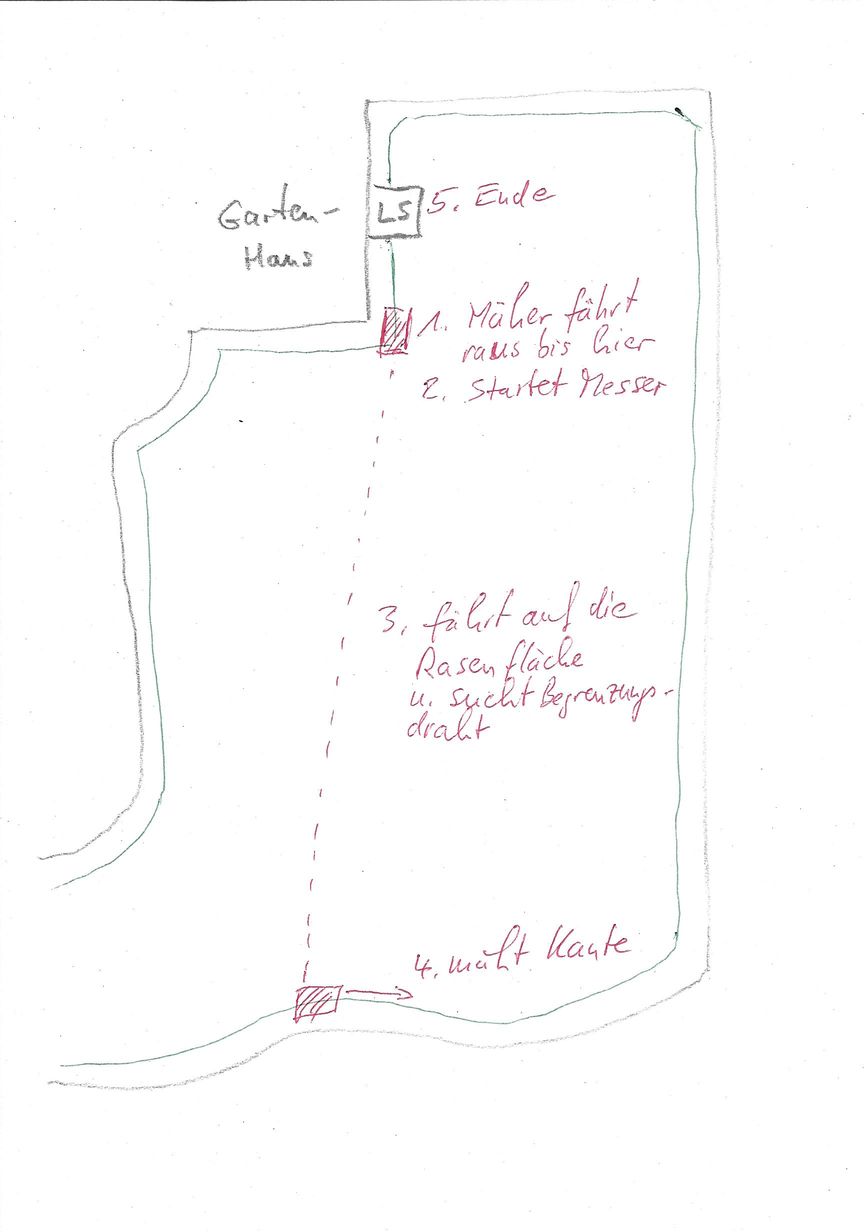 Garten-
Haus
LS
5. Ende
1. Mäher fährt
raus bis hier
2. Startet Messer
3. fährt auf die
Rasenfläche
u. sucht Begrenzungs-
draht
4. mäht Kante